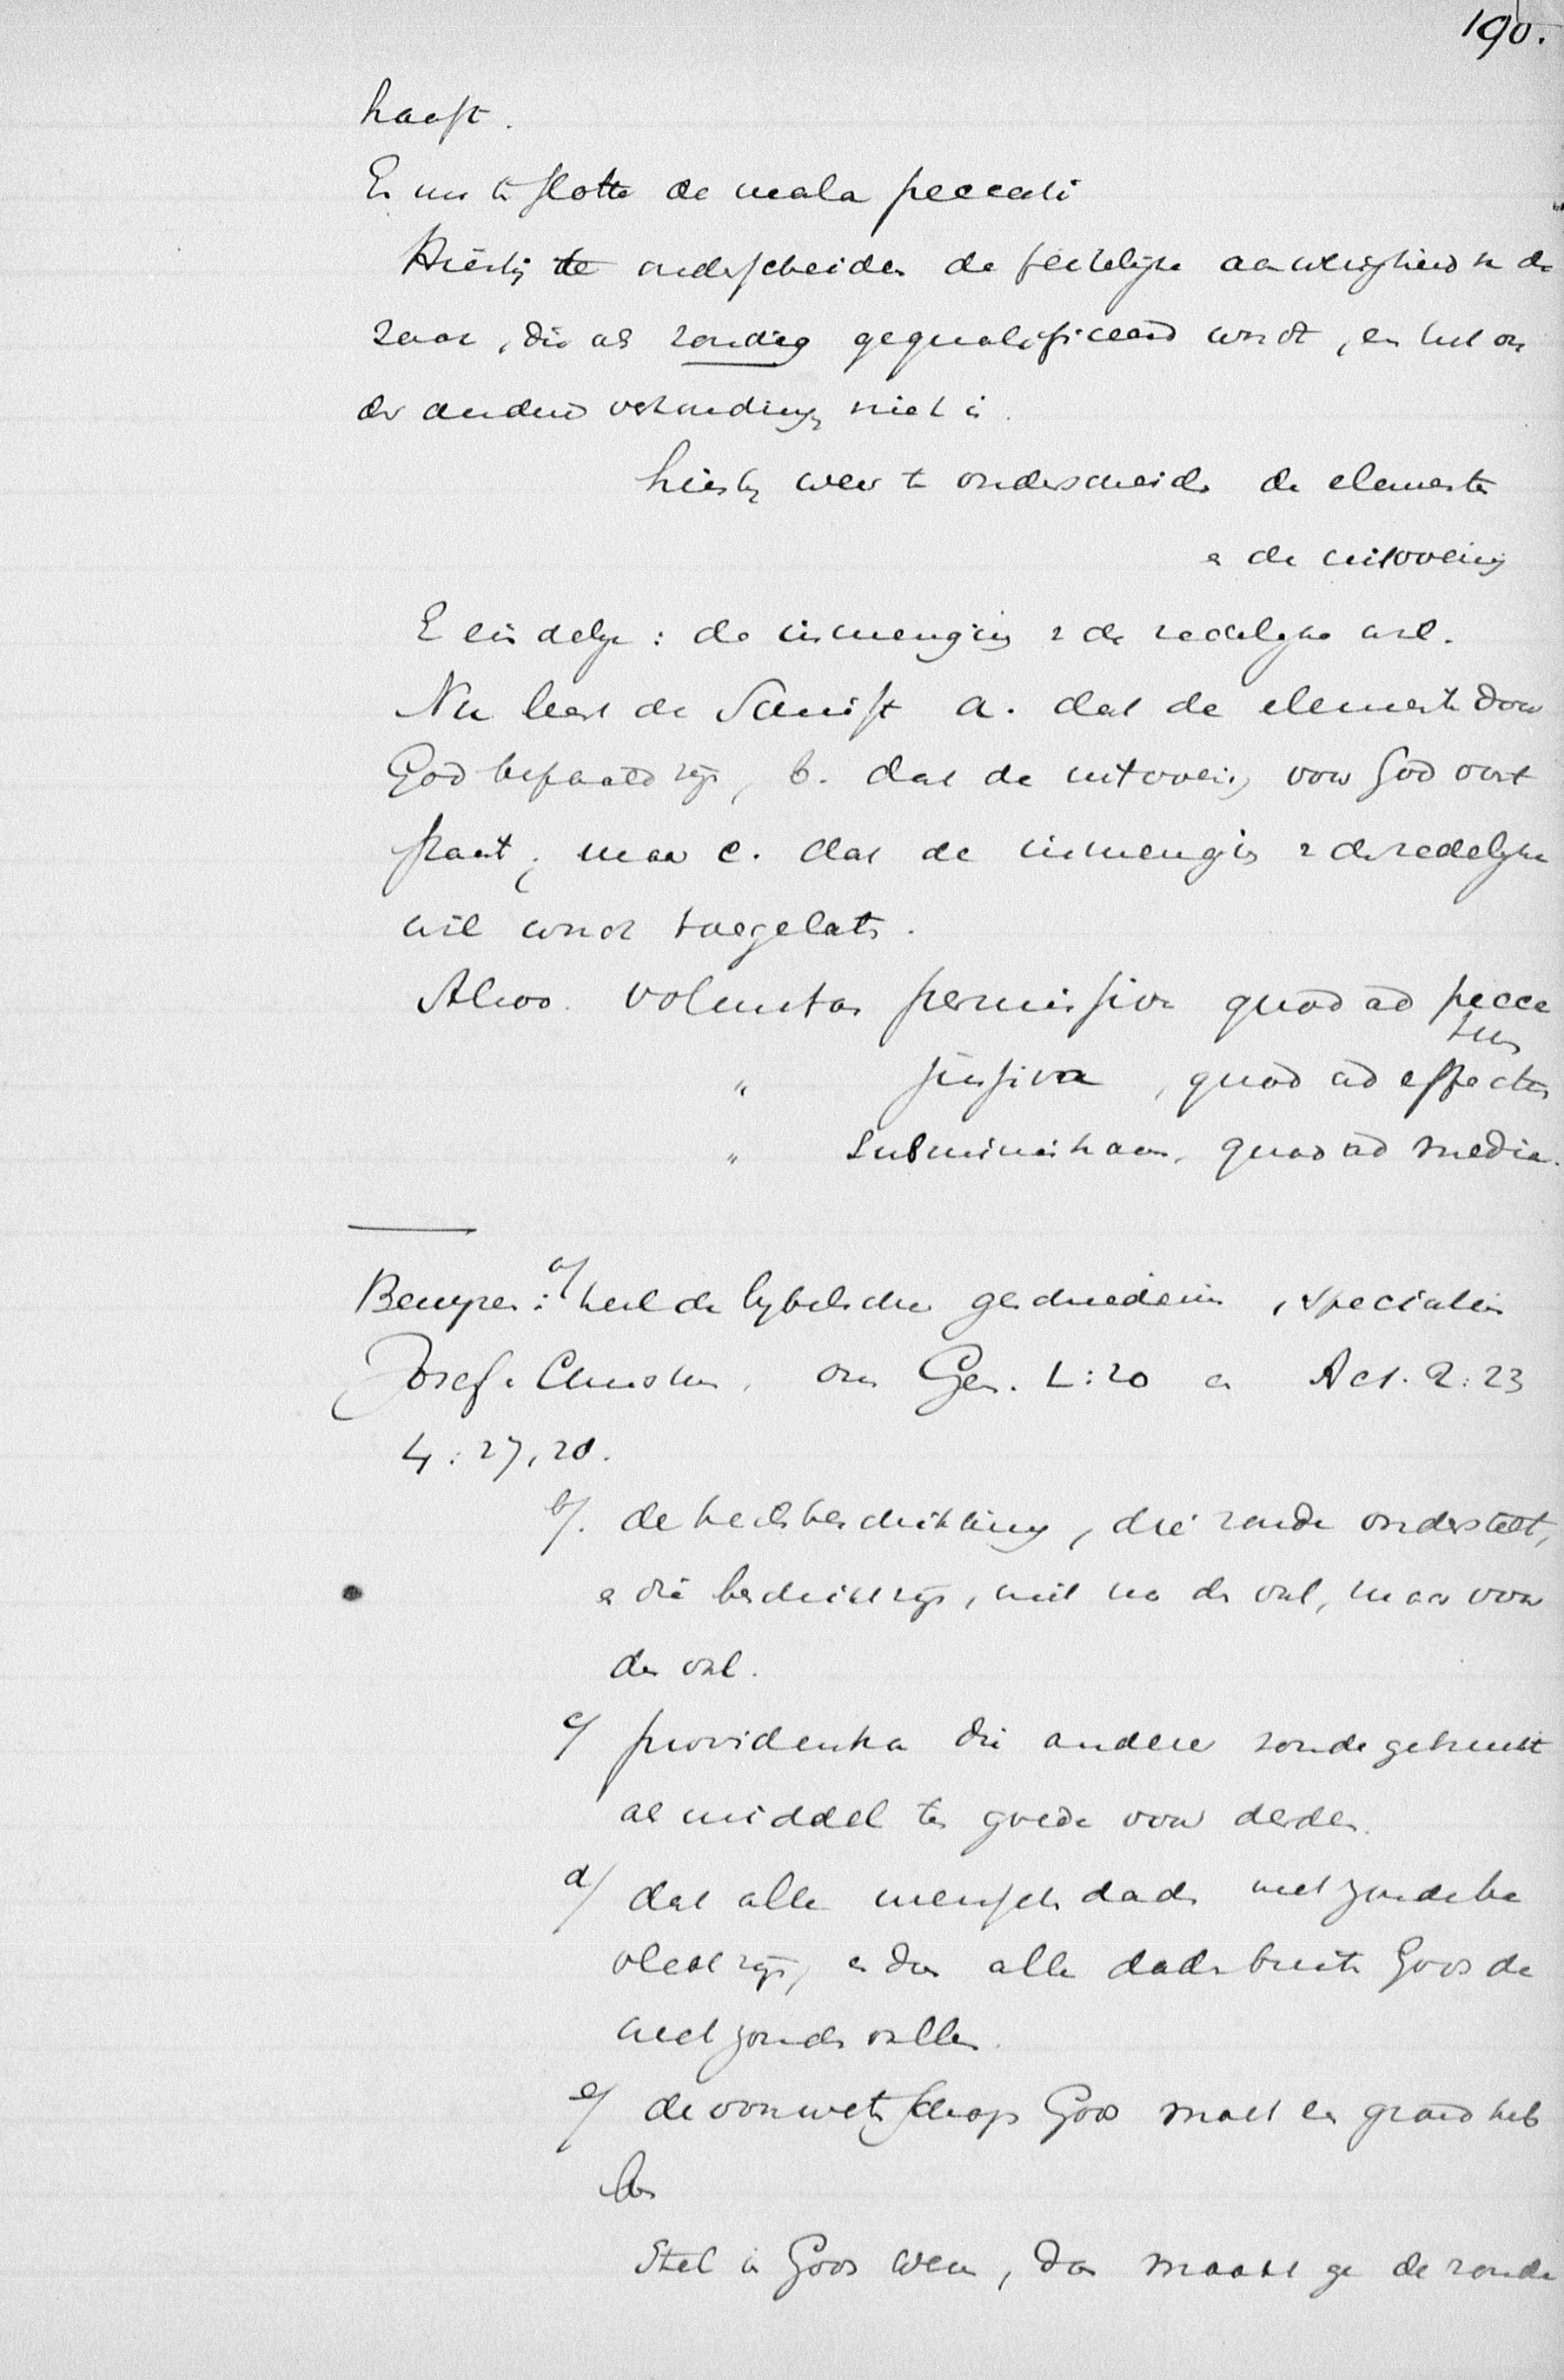 190.
haast.
En nu te slotte de mala peccati
Hierbij te onderscheiden de feitelijke aanwezigheid v. de
zaak, die als zondig gequalificeerd wordt, en het on
der andere verhouding niet is.
hierbij weer te onderscheiden de elementen
en de uitvoering
Eindelijk: de inmenging v. de zedelijke wil.
Nu leert de Schrift a. dat de elementen door
God bepaald zijn, b. dat de uitvoering voor God vast
staat; maar c. dat de inmenging v. de zedelijke
wil wordt toegelaten.
Alzoo. voluntas permissiva quod ad pecca
tum
" jussiva, quod ad effectum
" subministrans, quod ad media.
Bewijzen: a/ heel de bybelsche geschiedenis, speciaal in
Josef en Christus, Gen. L:20 en Act. 2:23
4:27,28.
b/. de heilsbeschikking, die zonde onderstelt,
en die beschikt zijn, niet na de val, maar voor
de val.
c/ providentia die andere zonde gebruikt
als middel ten goede voor derden.
d/ dat alle menschdaden met zonde be
vlekt zijn, en dus alle daden buiten Gods de
creet zouden vallen.
e/ de voorwetenschap Gods moet een grond heb
ben
Stel in Gods Wezen, dan maakt ge de zonde